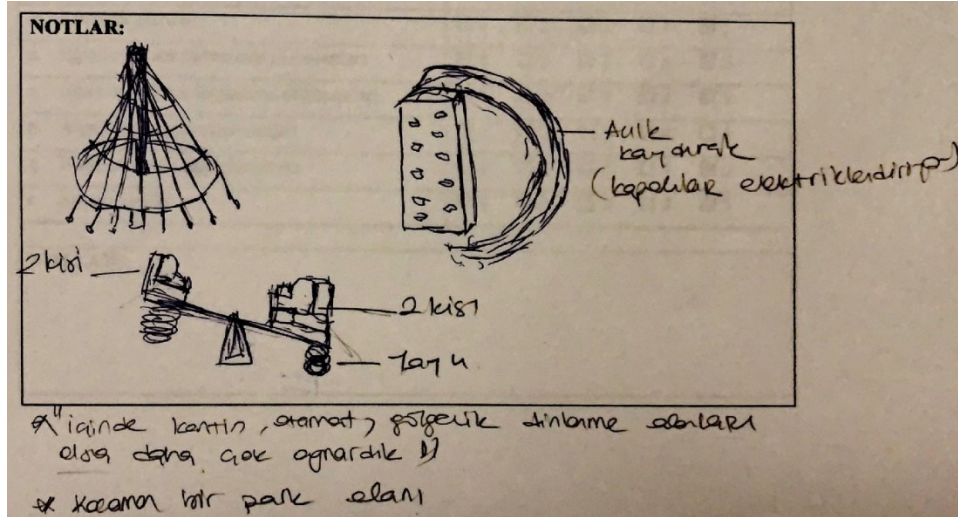 NOTLAR:
Açık
kaydırak
(kapalılar elektriklendiriyor)
2 kişi
2 kişi
Yaylı
* "içinde kantin, otomat, gölgelik dinlenme alanları
olsa daha çok oynardık"
* Kocaman bir park alanı